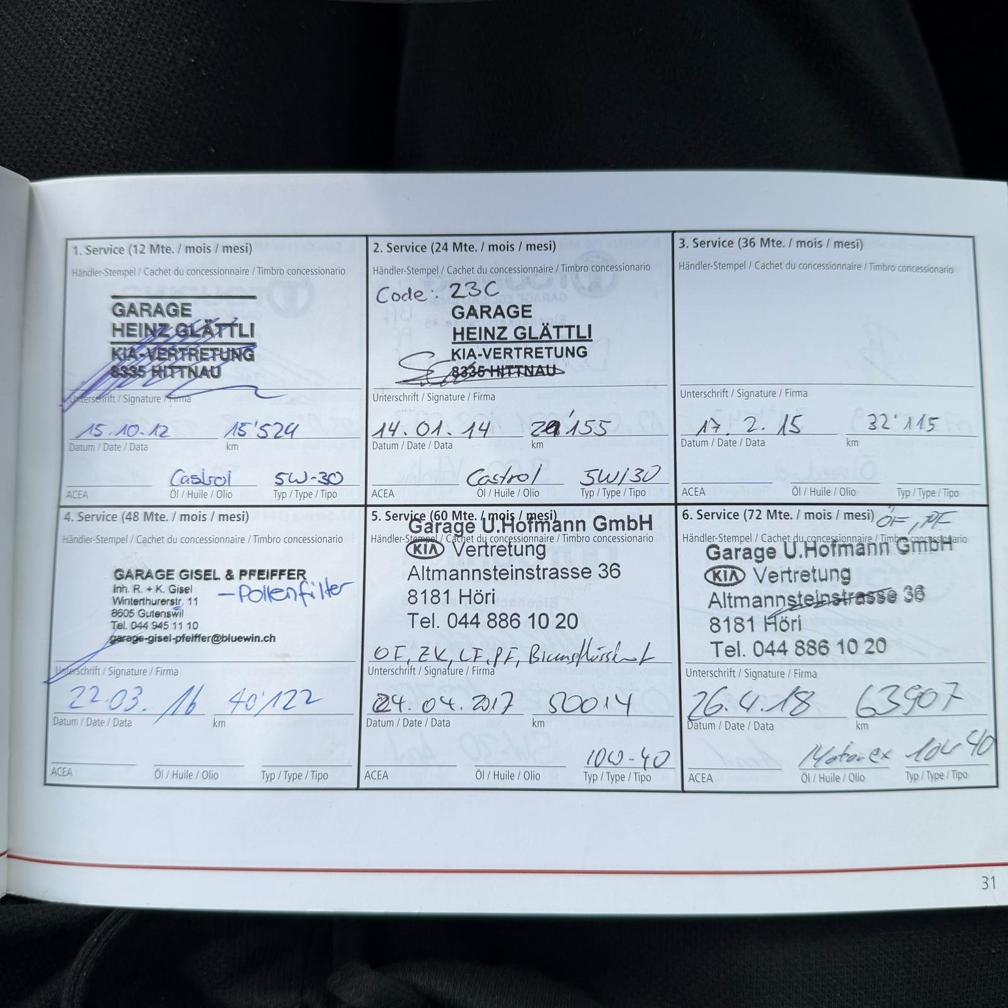 1. Service (12 Mte. / mois / mesi)
Händler-Stempel / Cachet du concessionnaire / Timbro concessionario
GARAGE
HEINZ GLÄTTLI
KIA-VERTRETUNG
8335 HITTNAU
Unterschrift / Signature / Firma
15.10.12 15'524
Datum / Date / Data km
Castrol 5W-30
ACEA Öl / Huile / Olio Typ / Type / Tipo
2. Service (24 Mte. / mois / mesi)
Händler-Stempel / Cachet du concessionnaire / Timbro concessionario
Code: 23C
GARAGE
HEINZ GLÄTTLI
KIA-VERTRETUNG
8335 HITTNAU
Unterschrift / Signature / Firma
14.01.14 155
Datum / Date / Data km
Castrol 5W/30
ACEA Öl / Huile / Olio Typ / Type / Tipo
3. Service (36 Mte. / mois / mesi)
Händler-Stempel / Cachet du concessionnaire / Timbro concessionario
Unterschrift / Signature / Firma
17. 2. 15 32'115
Datum / Date / Data km
ACEA Öl / Huile / Olio Typ / Type / Tipo
4. Service (48 Mte. / mois / mesi)
Händler-Stempel / Cachet du concessionnaire / Timbro concessionario
GARAGE GISEL & PFEIFFER
Inh. R. + K. Gisel
- Pollenfilter
Winterthurerstr. 11
8605 Gutenswil
Tel. 044 945 11 10
garage-gisel-pfeiffer@bluewin.ch
Unterschrift / Signature / Firma
22.03. 16 40'122
Datum / Date / Data km
ACEA Öl / Huile / Olio Typ / Type / Tipo
5. Service (60 Mte. / mois / mesi)
Garage U.Hofmann GmbH
Händler-Stempel / Cachet du concessionnaire / Timbro concessionario
KIA Vertretung
Altmannsteinstrasse 36
8181 Höri
Tel. 044 886 10 20
OF, ZK, LF, PF, Bremsflüssigkeit
Unterschrift / Signature / Firma
24. 04. 2017 50014
Datum / Date / Data km
10W-40
ACEA Öl / Huile / Olio Typ / Type / Tipo
6. Service (72 Mte. / mois / mesi) ÖF, PF
Händler-Stempel / Cachet du concessionnaire / Timbro concessionario
Garage U.Hofmann GmbH
KIA Vertretung
Altmannsteinstrasse 36
8181 Höri
Tel. 044 886 10 20
Unterschrift / Signature / Firma
26.4.18 63907
Datum / Date / Data km
Motorex 10W40
ACEA Öl / Huile / Olio Typ / Type / Tipo
31